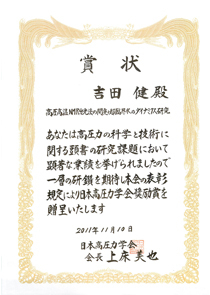 賞状
吉田 健殿
高圧高温NMR分光法の開発と超臨界水のダイナミクス研究
あなたは高圧力の科学と技術に
関する顕書の研究課題において
顕著な業績を挙げられましたので
一層の研鑽を期待し本会の表彰
規定により日本高圧力学会奨励賞を
贈呈いたします
2011年11月10日
日本高圧力学会
会長 上床美也